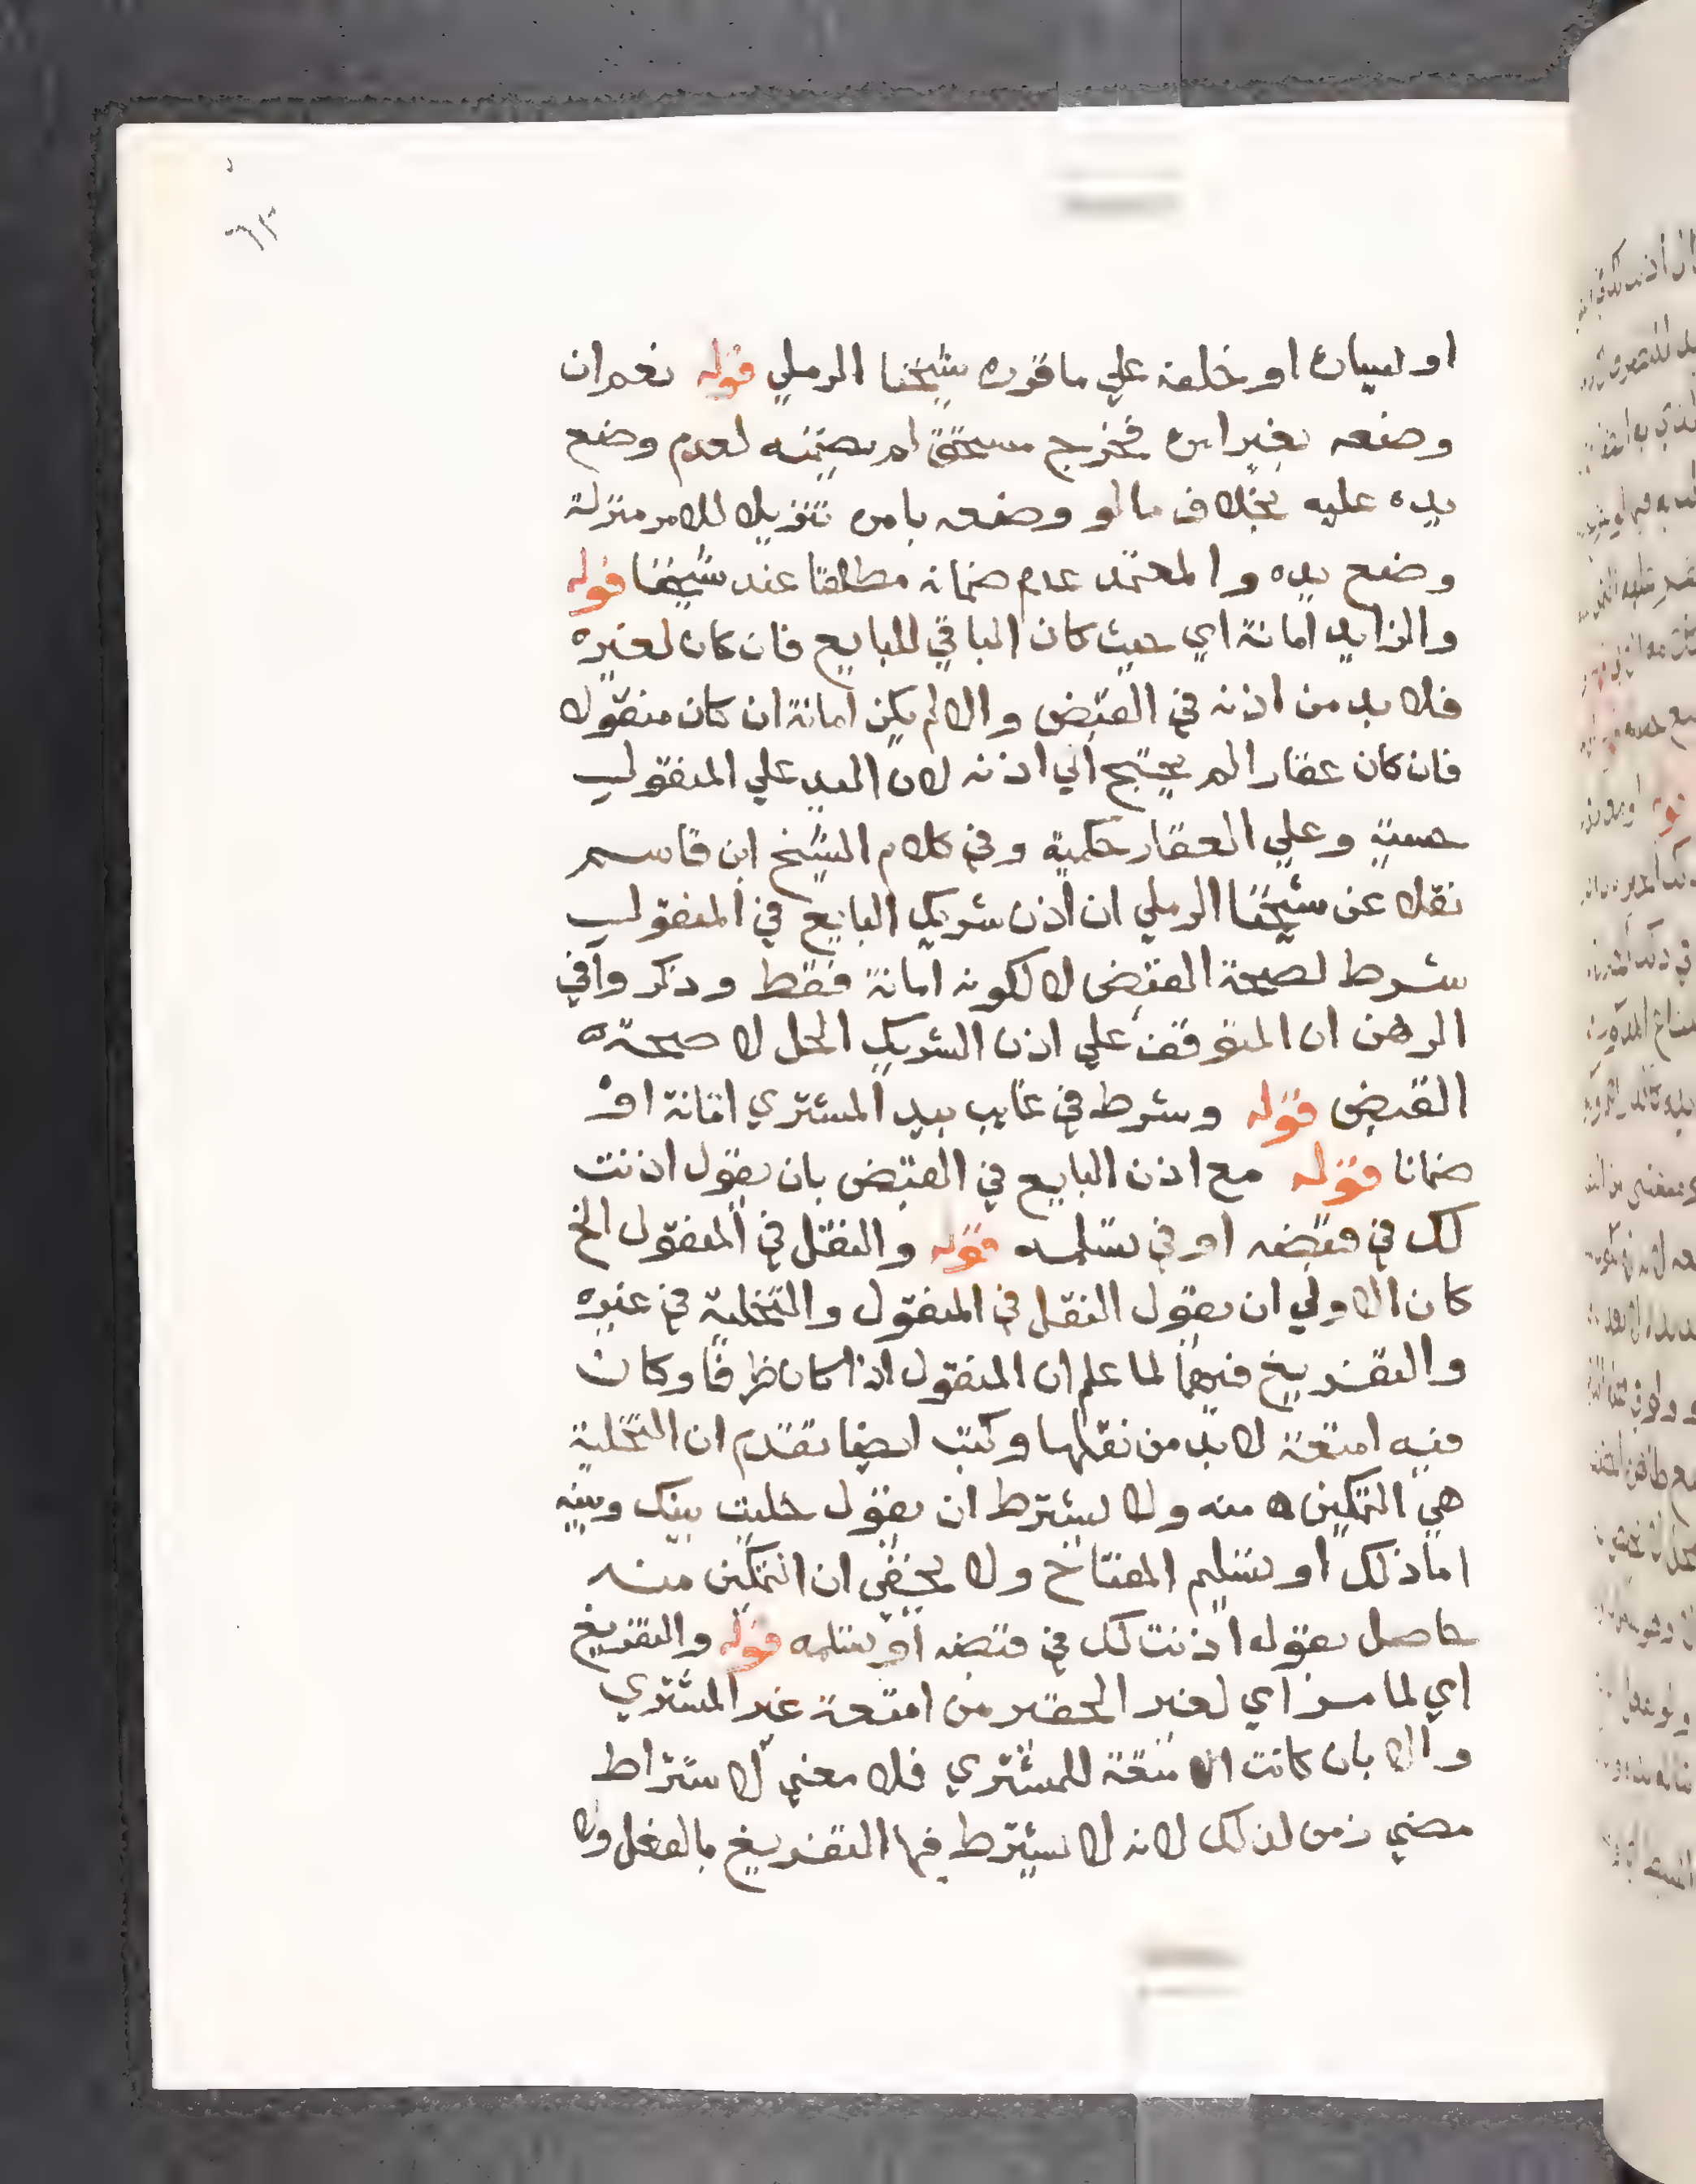 ٦٣
او لسان او خلفه علي ما قرره شيخنا الرملي قوله نعم ان
وضعه بغير امره فخرج مستحقا لم يضمنه لعدم وضع
يده عليه بخلاف ما لو وضعه بامره تنزيلا للامر منزلة
وضع يده والمعتمد عدم ضمانه مطلقا عند شيخنا قوله
والزايد امانة اي حيث كان الباقي للبايع فان كان لغيره
فلا بد من اذنه في القبض والا لم يكن امانة ان كان منقولا
فان كان عقارا لم يحتج الي اذنه لان اليد علي المنقول
حسية وعلي العقار حكمية وفي كلام الشيخ ابن قاسم
نقلا عن شيخنا الرملي ان اذن شريك البايع في المنقول
شرط لصحة القبض لا لكونه امانة فقط وذكروا في
الرهن ان المتوقف علي اذن الشريك الحل لا صحة
القبض قوله وشرط في غايب بيد المشتري امانة او
ضمانا قوله مع اذن البايع في القبض بان يقول اذنت
لك في قبضه او في تسلمه قوله والنقل في المنقول الخ
كان الاولي ان يقول النقل في المنقول والتخلية في غيره
والتفريغ فيهما لما علم ان المنقول اذا كان ظرفا وكان
فيه امتعة لا بد من نقلها وكتب ايضا تقدم ان التخلية
هي التمكين منه ولا يشترط ان يقول خليت بينك وبينه
اما ذلك او تسليم المفتاح ولا يخفي ان التمكين منه
حاصل بقوله اذنت لك في قبضه او تسلمه قوله والتفريغ
اي لما مر اي لغير الحقير من امتعة غير المشتري
والا بان كانت الامتعة للمشتري فلا معني لاشتراط
مضي زمن لذلك لانه لا يشترط فيها التفريغ بالفعل ولا